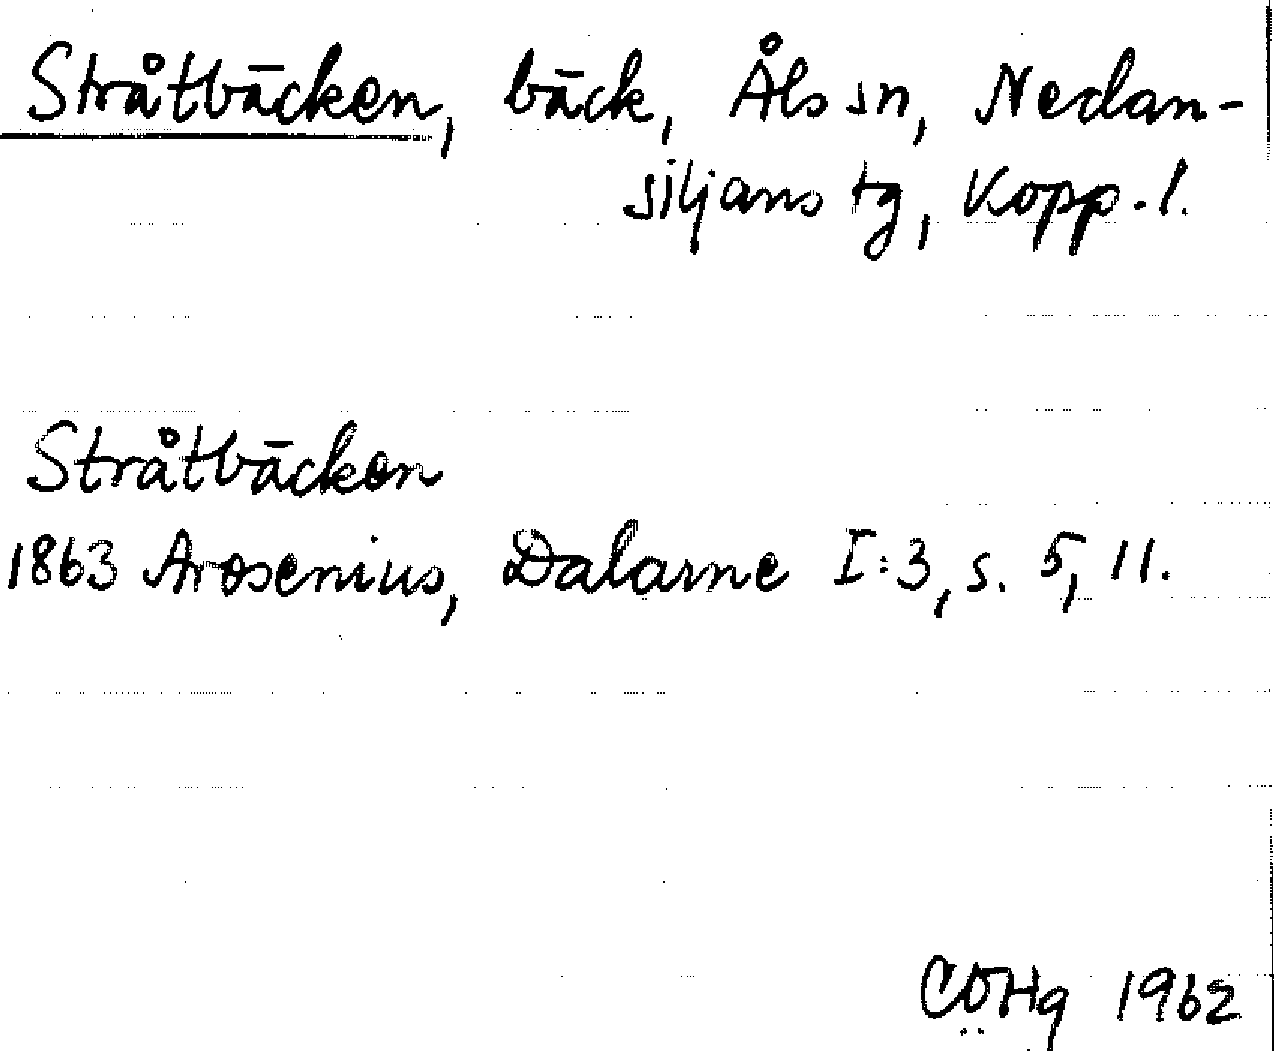 Stråtbäcken, bäck, Åls sn, Nedan-
siljans tg, Kopp. l.
Stråtbäcken
1863 Arosenius, Dalarne I:3, s. 5, 11.
CÖHg 1962